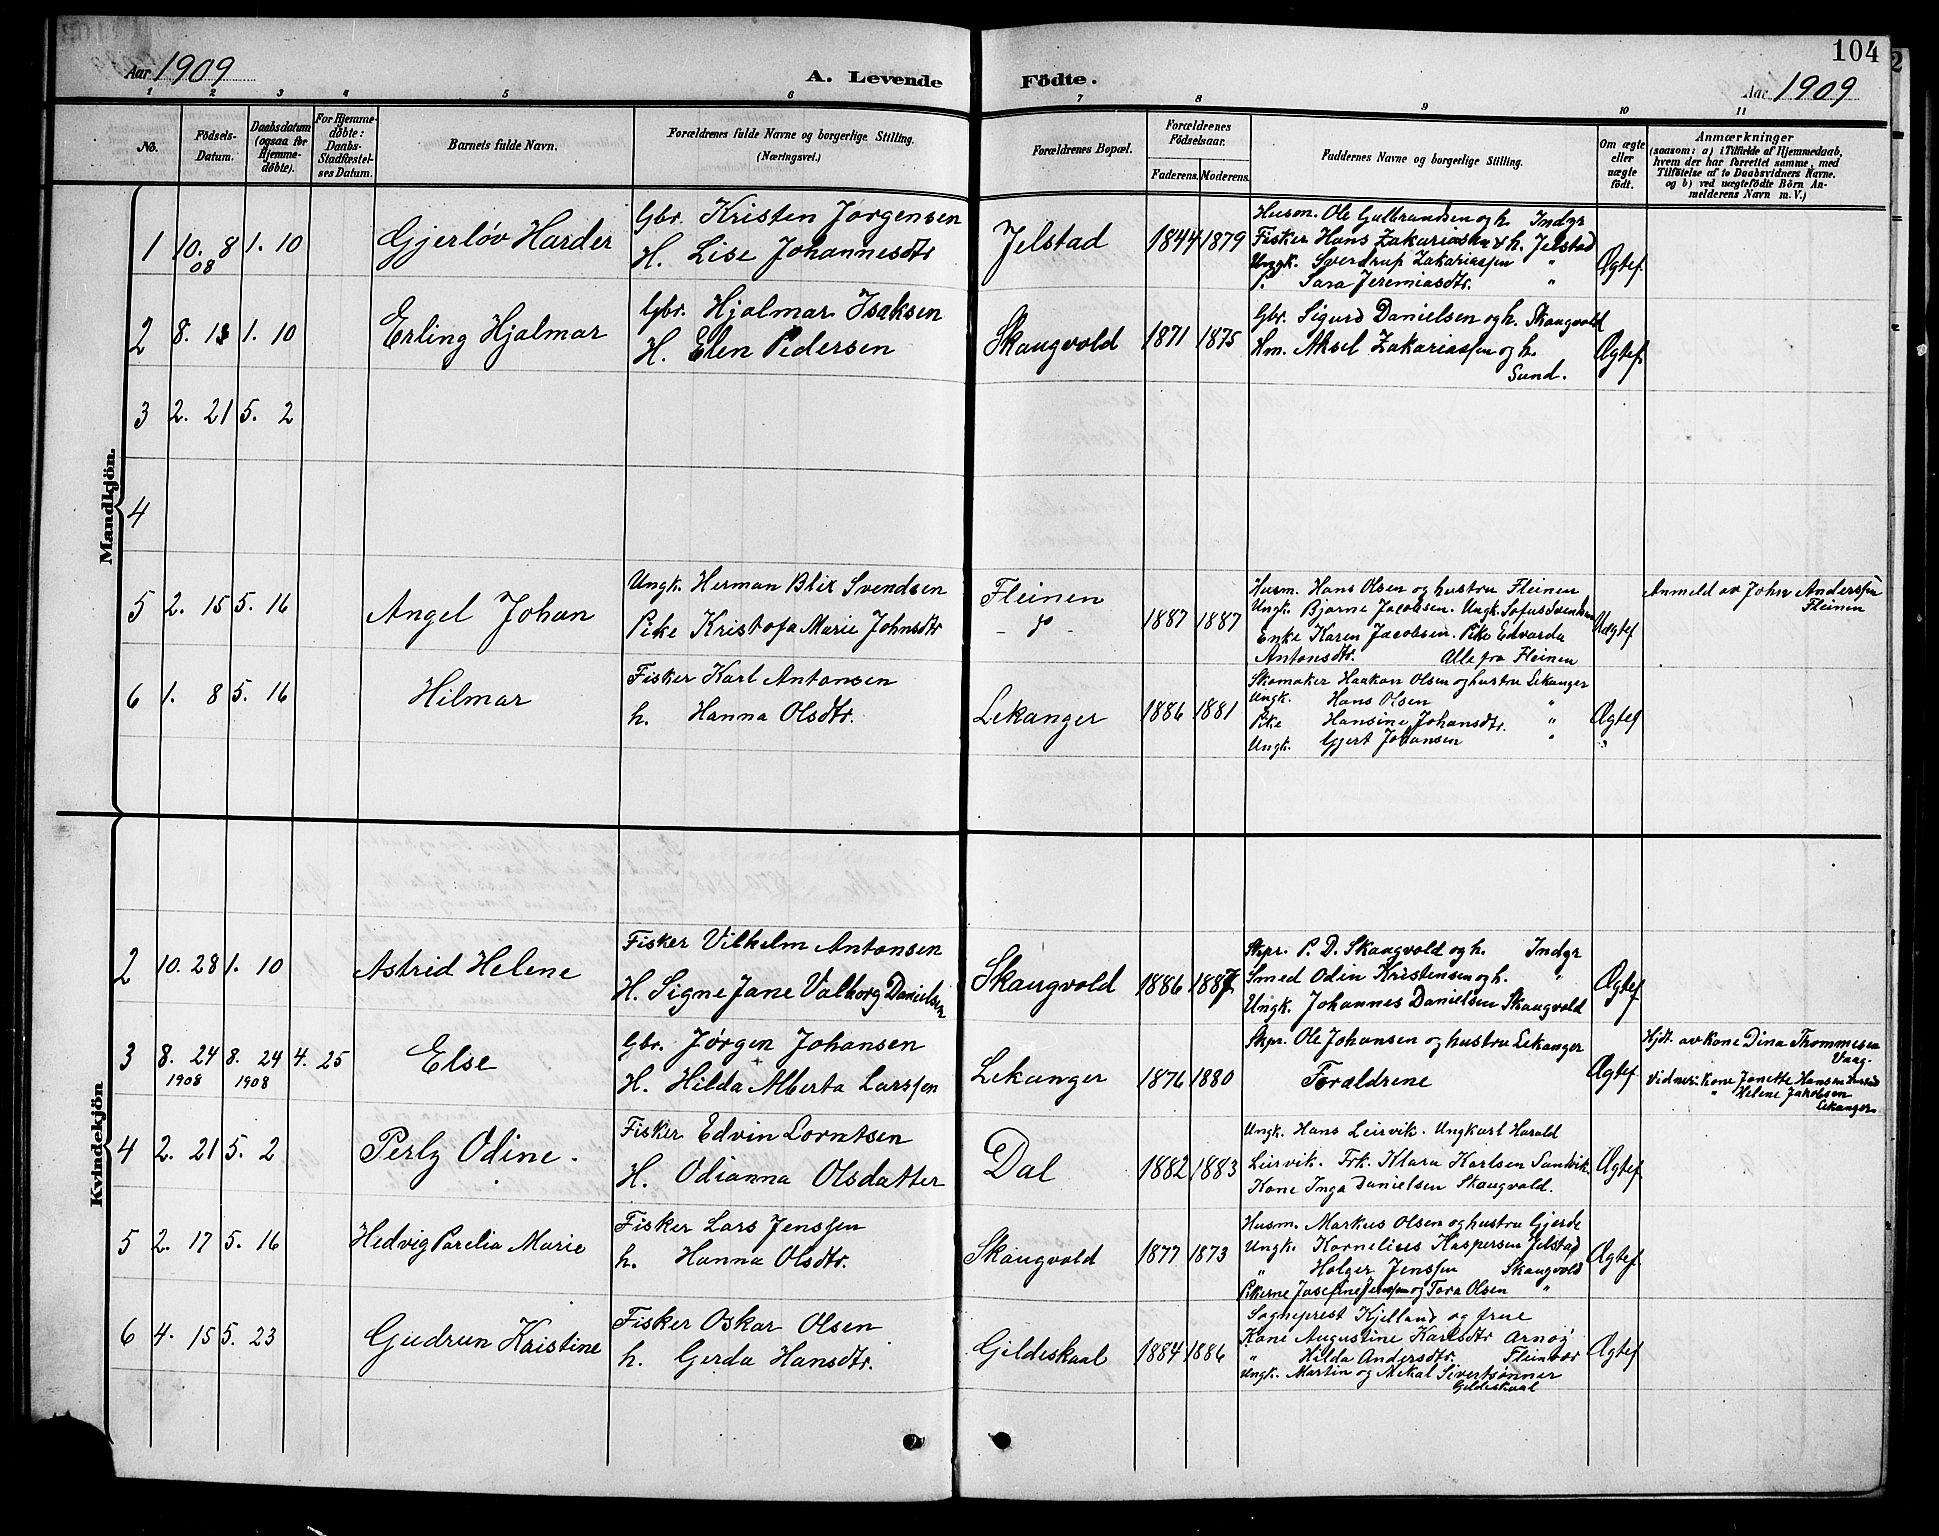 104
Aar 1909
A. Levende Födte.
Aar 1909
1 2 3 4 5 6 7 8 9 10 11
No.
Födsels-Datum.
Daabsdatum (ogsaa for Hjemme-døbte).
For Hjemme-døbte: Daabs-Stadfæstel-ses Datum.
Barnets fulde Navn.
Forældrenes fulde Navne og borgerlige Stilling.
(Næringsvei.)
Forældrenes Bopæl.
Forældrenes Födselsaar.
Faderens. Moderens.
Faddernes Navne og borgerlige Stilling.
Om ægte eller uægte födt.
Anmærkninger
(saasom: a) i Tilfælde af Hjemmedaab,
hvem der har forrettet samme, med
Tilföielse af to Daabsvidners Navne.
og b) ved uægtefödte Börn An-
melderens Navn m. V.)
Mandkjön.
1 10. 8 08 1. 10 Gjerløv Harder
Gbr. Kristen Jørgensen
H. Lise Johannesdtr
Jelstad 1844 1879
Husm. Ole Gulbrandsen og h. Indgr
Fisker Hans Zakariassen & h. Jelstad
Ungk. Sverdrup Zakariassen "
P. Sara Jeremiasdtr. "
Ægtef
2 8. 13 1. 10 Erling Hjalmar
Gbr. Hjalmar Isaksen
H. Elen Pedersen
Skaugvold 1871 1875
Gbr. Sigurd Danielsen og h. Skaugvold
Hm. Aksel Zakariassen og h.
Sund.
Ægtef.
3 2. 21 5. 2
4
5 2. 15 5. 16 Angel Johan
Ungk. Herman Blix Svendsen
Pike Kristofa Marie Johnsdtr
Fleinen
1887 1887
Husm. Hans Olsen og hustru Fleinen
Ungk. Bjarne Jacobsen. Ungk. Sofus Svendsen
Enke Karen Jacobsen. Pike Edvarda
Antonsdtr. Alle fra Fleinen
Uægtef
Anmeld av John Anderssen
Fleinen
6 1. 8 5. 16 Hilmar
Fisker Karl Antonsen
h. Hanna Olsdtr.
Lekanger 1886 1881
Skomaker Haakon Olsen og hustru Lekanger
Ungk. Hans Olsen "
Pike Hansine Johansdtr. "
Ungk. Gjert Johansen "
Ægtef
Kvindekjön
2 10. 28 1. 10 Astrid Helene
Fisker Vilhelm Antonsen
H. Signe Jane Valborg Danielsen
Skaugvold 1886 1887
Skpr. P. D. Skaugvold og h. Indgr
Smed Odin Kristensen og h. "
Ungk. Johannes Danielsen Skaugvold
Ægtef
3 8. 24 1908 8. 24 1908 4. 25 Else
Gbr. Jørgen Johansen
H. Hilda Alberta Larssen
Lekanger 1876 1880
Skpr. Ole Johansen og hustru Lekanger
Forældrene
Ægtef
Hjdt. av Kone Dina Thommesen
Vaag.
Vidner: Kone Janette Hansen
" Helene Jakobsen
Lekanger
4 2. 21 5. 2 Perly Odine.
Fisker Edvin Lorntsen
H. Odianna Olsdatter
Dal 1882 1883
Ungk. Hans Leirvik. Ungkarl Harald
Leirvik. Frk. Klara Karlsen Sandvik.
Kone Inga Danielsen Skaugvold.
Ægtef
5 2. 17 5. 16 Hedvig Parelia Marie
Fisker Lars Jenssen
h. Hanna Olsdtr.
Skaugvold 1877 1873
Husm. Markus Olsen og hustru Gjerde
Ungk. Kornelius Kaspersen Jelstad
" Holger Jenssen Skaugvold
Pikerne Josefine Jenssen og Tora Olsen "
Ægtef
6 4. 15 5. 23 Gudrun Kristine
Fisker Oskar Olsen
h. Gerda Hansdtr.
Gildeskaal 1884 1886
Sogneprest Kjelland og frue
Kone Augustine Karlsdtr Arnøy
" Hilda Andersdtr. Fleinvær
Ungk. Martin og Mekal Sivertsønner
Gildeskaal
Ægtef